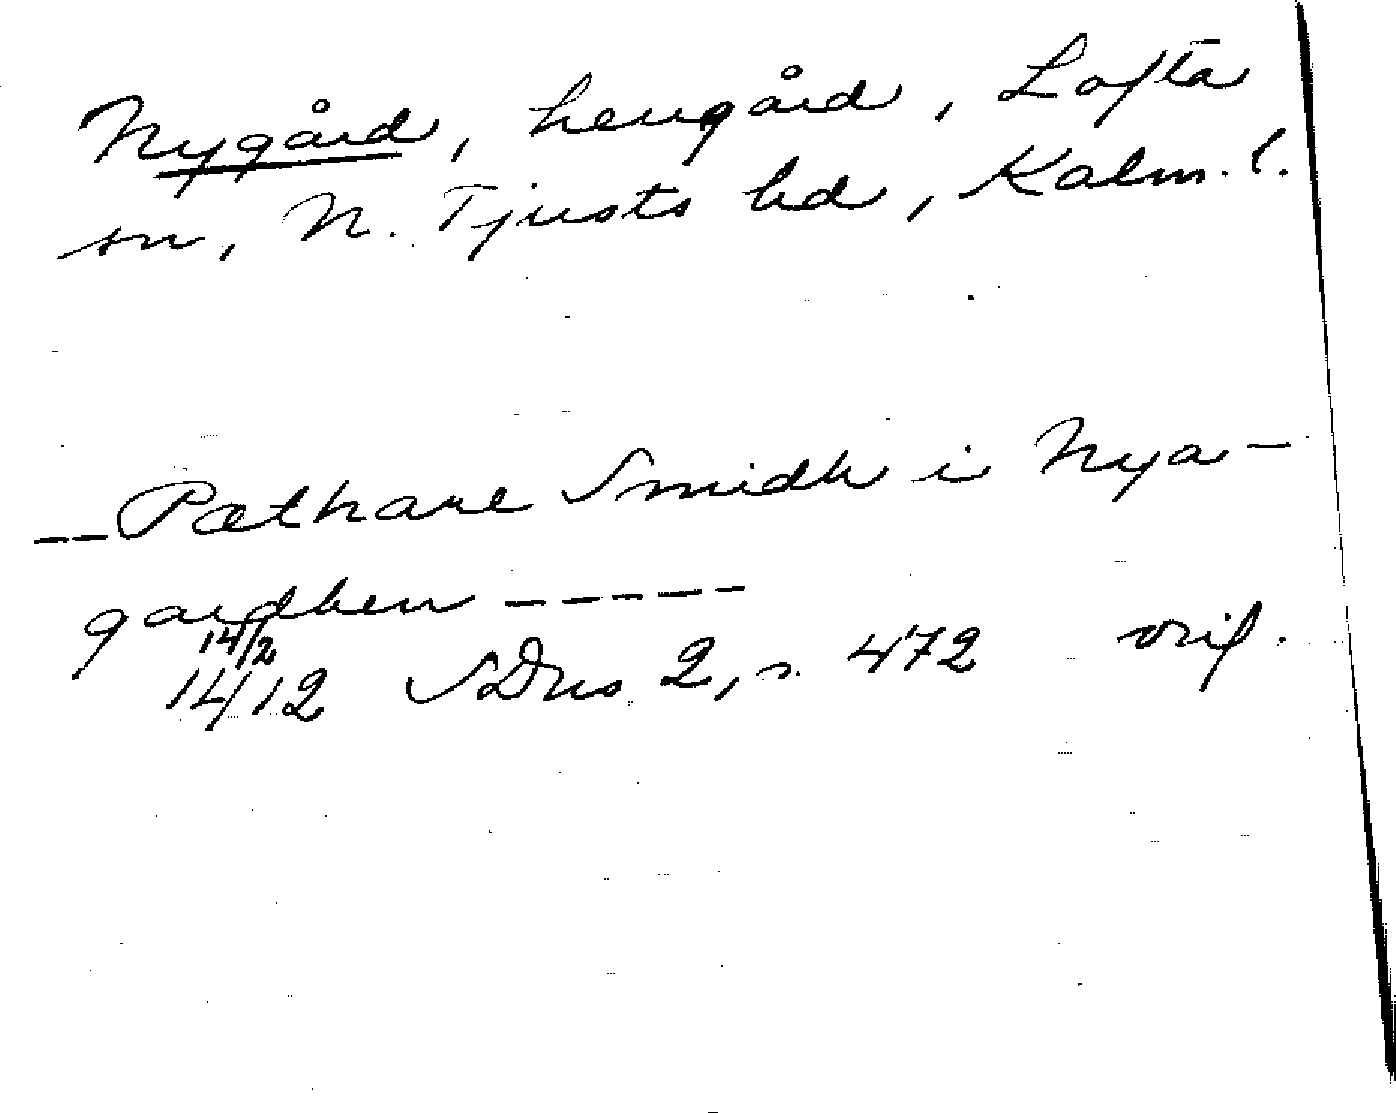 Nygård, herrgård, Lofta
sn, N. Tjusts hd, Kalm. l.
-- Pæthare Smidh i Nya-
gardhen -----
14/2
1412 SDns 2, s. 472 orig.